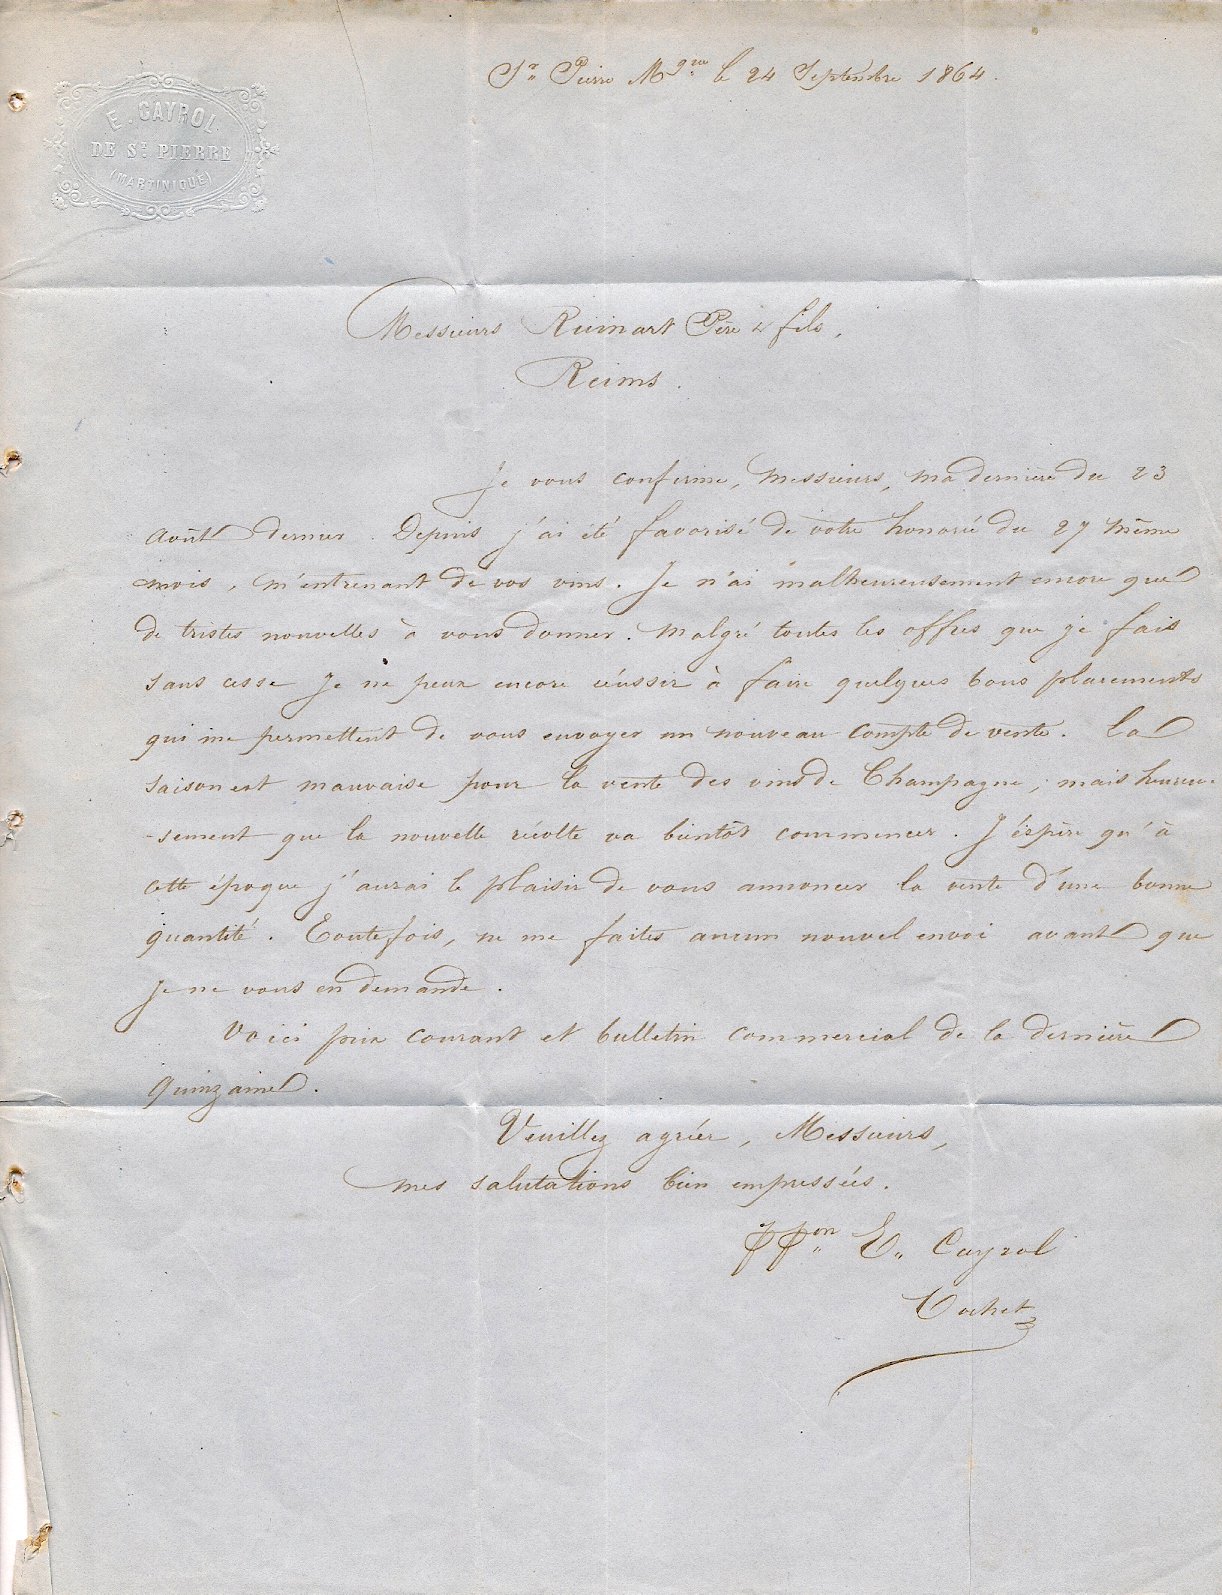 E. CAYROL
DE St. PIERRE
(MARTINIQUE)
St. Pierre Mque le 24 Septembre 1864.
Messieurs Ruinart Père & fils,
Reims.
Je vous confirme, Messieurs, ma dernière du 23
Août dernier. Depuis j'ai été favorisé de votre honorée du 27 même
mois, m'entrenant de vos vins. Je n'ai malheureusement encore que
de tristes nouvelles à vous donner. Malgré toutes les offres que je fais
sans cesse je ne peux encore réussir à faire quelques bons placements
qui me permettent de vous envoyer un nouveau compte de vente. La
saison est mauvaise pour la vente des vins de Champagne, mais heureu-
-sement que la nouvelle récolte va bientôt commencer. J'espère qu'à
cette époque j'aurai le plaisir de vous annoncer la vente d'une bonne
quantité. Toutefois, ne me faites aucun nouvel envoi avant que
je ne vous en demande.
Voici prix courant et bulletin commercial de la dernière
quinzaine.
Veuillez agréer, Messieurs,
mes salutations bien empressées.
PPon E. Cayrol
Cochet